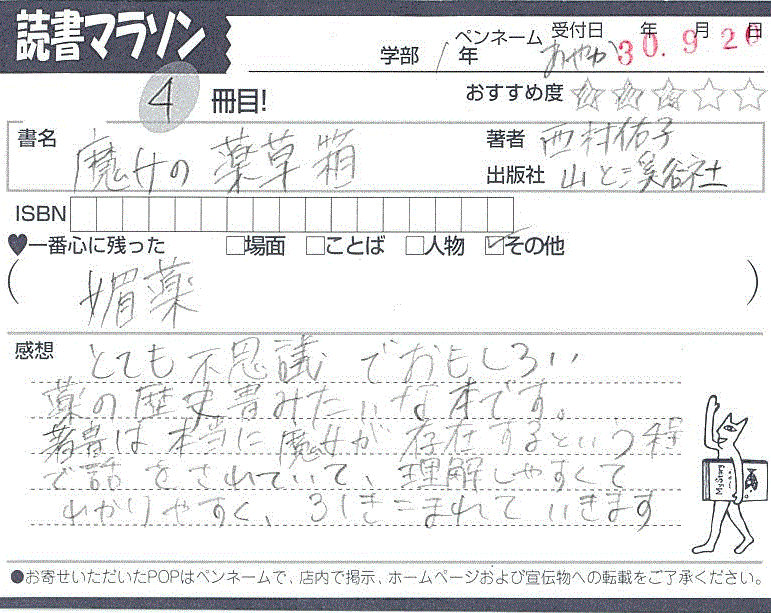 読書マラソン
学部 1年 ペンネーム あやか 受付日 年 月 日 30.9.26
4 冊目!
おすすめ度 ☆☆☆☆☆
書名 魔女の薬草箱
著者 西村佑子
出版社 山と渓谷社
ISBN
♥一番心に残った □場面 □ことば □人物 ☑その他
(媚薬)
感想 とても不思議でおもしろい
薬の歴史書みたいな本です。
著者は本当に魔女が存在するという程
で話をされていて、理解しやすくて
わかりやすく、ひきこまれていきます
●お寄せいただいたPOPはペンネームで、店内で掲示、ホームページおよび宣伝物への転載をご了承ください。